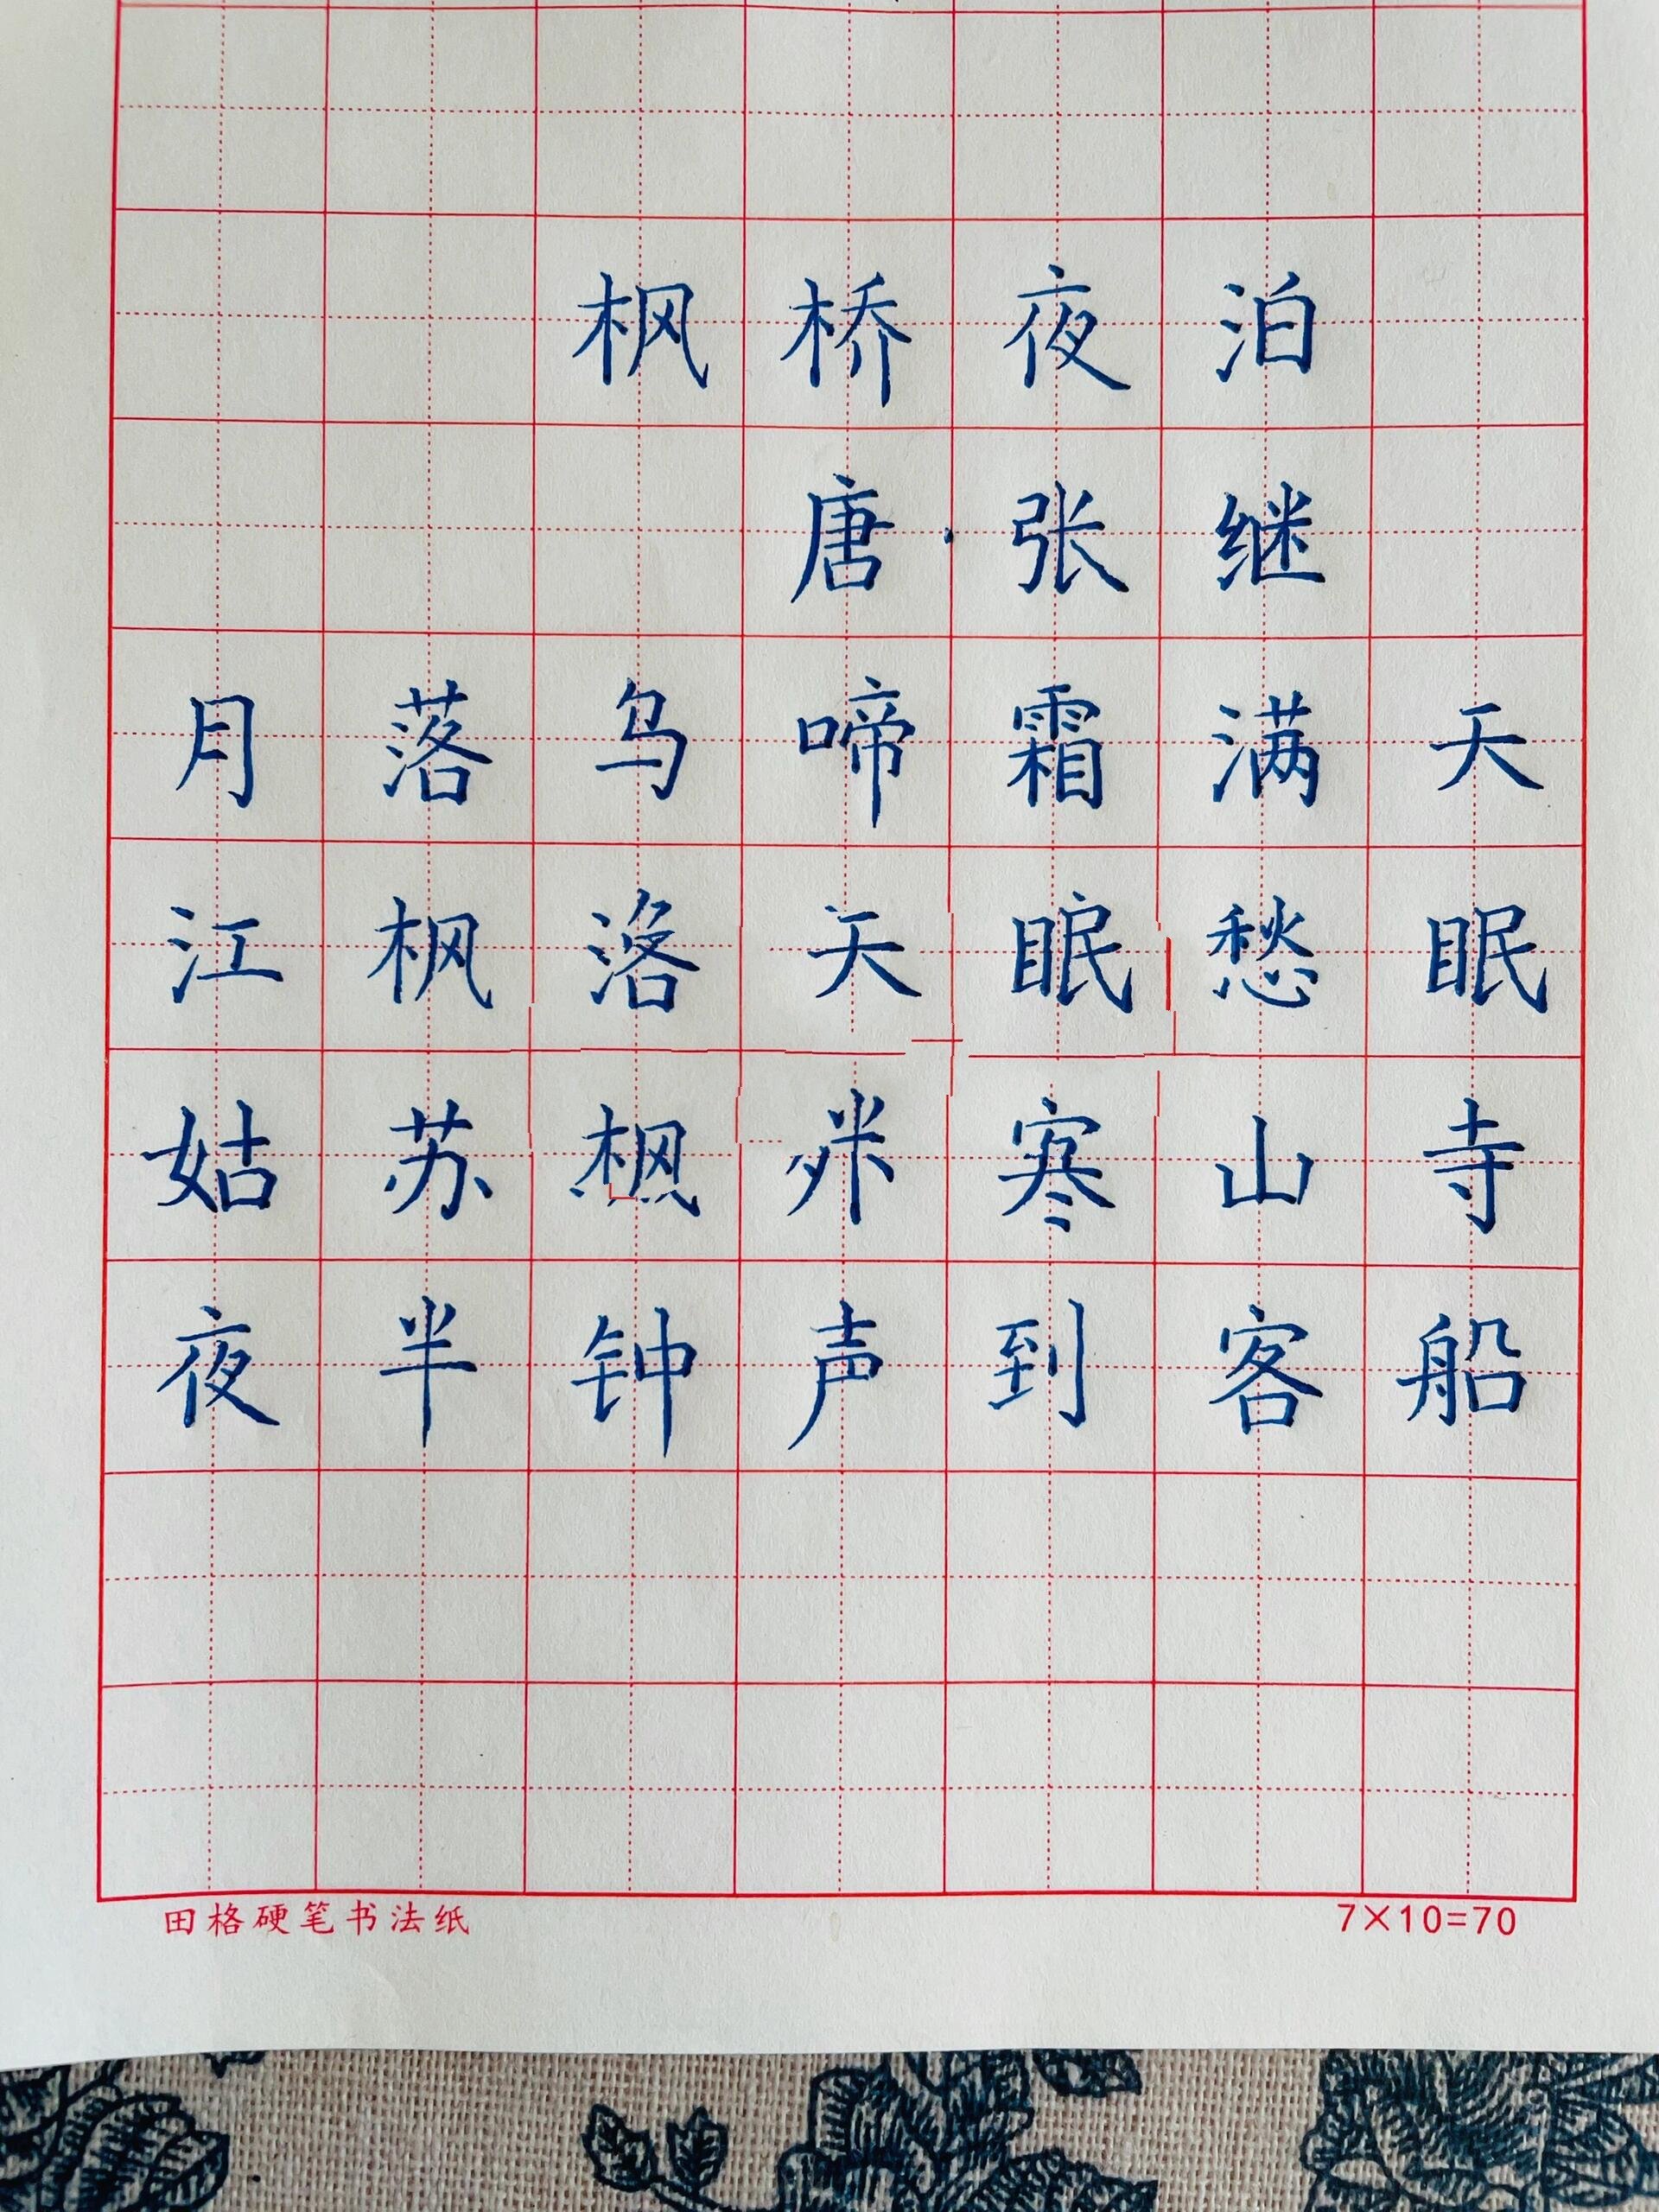 枫桥夜泊
唐·张继
月落乌啼霜满天
江枫洛天眠愁眠
姑苏寒山寺
夜半钟声到客船
田格硬笔书法纸 7×10=70